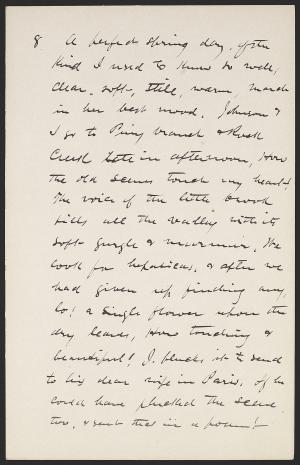 8 A perfect spring day, of the
kind I used to know so well,
clear, soft, still, warm, march
in her best mood. Johnson &
I go to Piny branch & Rock
Creek late in afternoon. How
the old scenes touch my heart!
The voice of the little brook
fills all the valley with its
soft gurgle & murmur. We
look for hepaticas, & after we
had given up finding any,
lo! a single flower above the
dry leaves, How touching &
beautiful! J. plucks it to send
to his dear wife in Paris. If he
could have plucked the scene
too, & sent that in a poem!